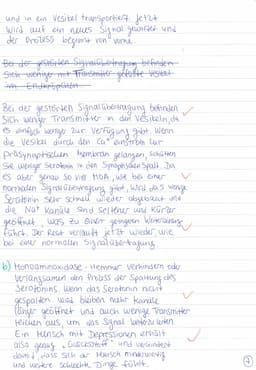 und in ein Vesikel transportiert. Jetzt
wird auf ein neues Signal gewartet und
der Prozess beginnt von vorne.
Bei der gestörten Signalübertragung befinden
sich weniger mit Transmitter gefüllte Vesikel
im Endknöpfchen
Bei der gestörten Signalübertragung befinden
sich weniger Transmitter in den Vesikeln, da
es einfach weniger zur Verfügung gibt. Wenn
die Vesikel durch den Ca⁺ einstrom zur
präsynaptischen Membran gelangen, schütten
sie weniger Serotonin in den Synaptischen Spalt. Da
es aber genau so viel MOA, wie bei einer
normalen Signalübertragung gibt, wird das wenige
Serotonin sehr schnell wieder abgebaut und
die Na⁺ Kanäle sind seltener und kürzer
geöffnet, was zu einer geringen
führt. Der Rest verläuft jetzt wieder wie
bei einer normalen Signalübertragung.
b) Monoaminooxidase-Hemmer verhindern oder
verlangsamen den Prozess der Spaltung des
Serotonins. Wenn das Serotonin nicht
gespalten wird bleiben mehr Kanäle
länger geöffnet und auch wenige Transmitter
reichen aus, um das Signal
Ein Mensch mit Depressionen erhält
also genug „Glücksstoff" und verhindert
damit, dass sich der Mensch minderwertig
und weitere schlechte Dinge fühlt.
7